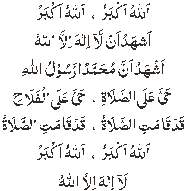 اَللّٰهُ اَكْبَرُ ، اَللّٰهُ اَكْبَرُ
اَشْهَدُ اَنْ لَّآ اِلٰهَ اِلَّا اللّٰهُ
اَشْهَدُ اَنَّ مُحَمَّدًا رَسُوْلُ اللّٰهِ
حَيَّ عَلَى الصَّلَاةِ ، حَيَّ عَلَى الْفَلَاحِ
قَدْ قَامَتِ الصَّلَاةُ ، قَدْ قَامَتِ الصَّلَاةُ
اَللّٰهُ اَكْبَرُ ، اَللّٰهُ اَكْبَرُ
لَآ اِلٰهَ اِلَّا اللّٰهُ